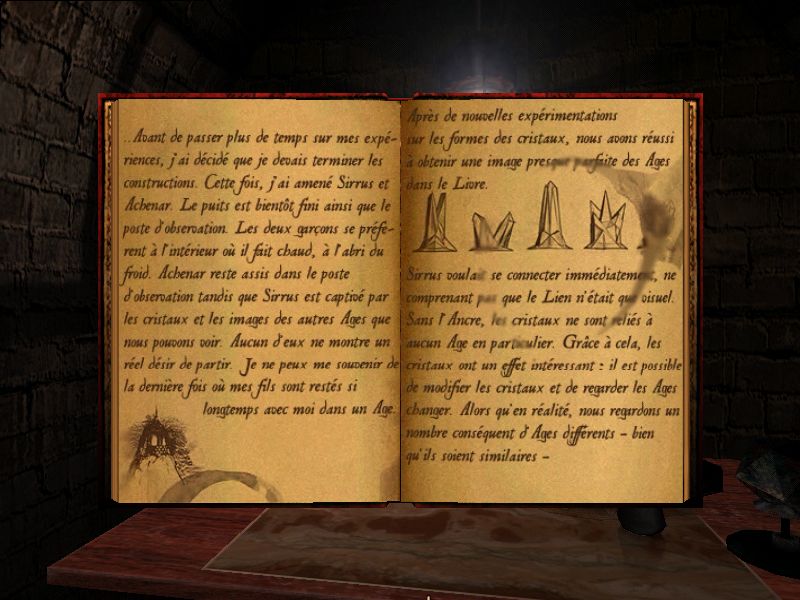 ..Avant de passer plus de temps sur mes expé-
riences, j'ai décidé que je devais terminer les
constructions. Cette fois, j'ai amené Sirrus et
Achenar. Le puits est bientôt fini ainsi que le
poste d'observation. Les deux garçons se préfè-
rent à l'intérieur où il fait chaud, à l'abri du
froid. Achenar reste assis dans le poste
d'observation tandis que Sirrus est captivé par
les cristaux et les images des autres Ages que
nous pouvons voir. Aucun d'eux ne montre un
réel désir de partir. Je ne peux me souvenir de
la dernière fois où mes fils sont restés si
longtemps avec moi dans un Age.
Après de nouvelles expérimentations
sur les formes des cristaux, nous avons réussi
à obtenir une image presque parfaite des Ages
dans le Livre.
Sirrus voulait se connecter immédiatement, ne
comprenant pas que le Lien n'était que visuel.
Sans l'Ancre, les cristaux ne sont reliés à
aucun Age en particulier. Grâce à cela, les
cristaux ont un effet intéressant : il est possible
de modifier les cristaux et de regarder les Ages
changer. Alors qu'en réalité, nous regardons un
nombre conséquent d'Ages différents - bien
qu'ils soient similaires -